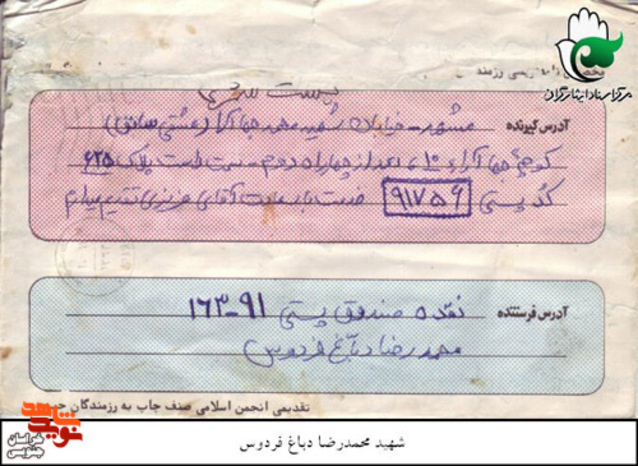 مرکز اسناد ایثارگران
پست شهری
آدرس گیرنده مشهد - خیابان شهید محمد جهانآرا (عشقی سابق)
کوچهٔ جهانآراء ۱۰، بعد از چهارراه دوم - سمت راست پلاک ۶۲۵
کد پستی ۹۱۷۵۶ خدمت باسعادت آقای عزیزی تقدیم میدارم
آدرس فرستنده نقده صندوق پستی ۹۱-۱۶۳
محمدرضا دباغ فردوس
تقدیمی انجمن اسلامی صنف چاپ به رزمندگان
شاهد
نوید
خراسان
جنوبی
شهید محمدرضا دباغ فردوس